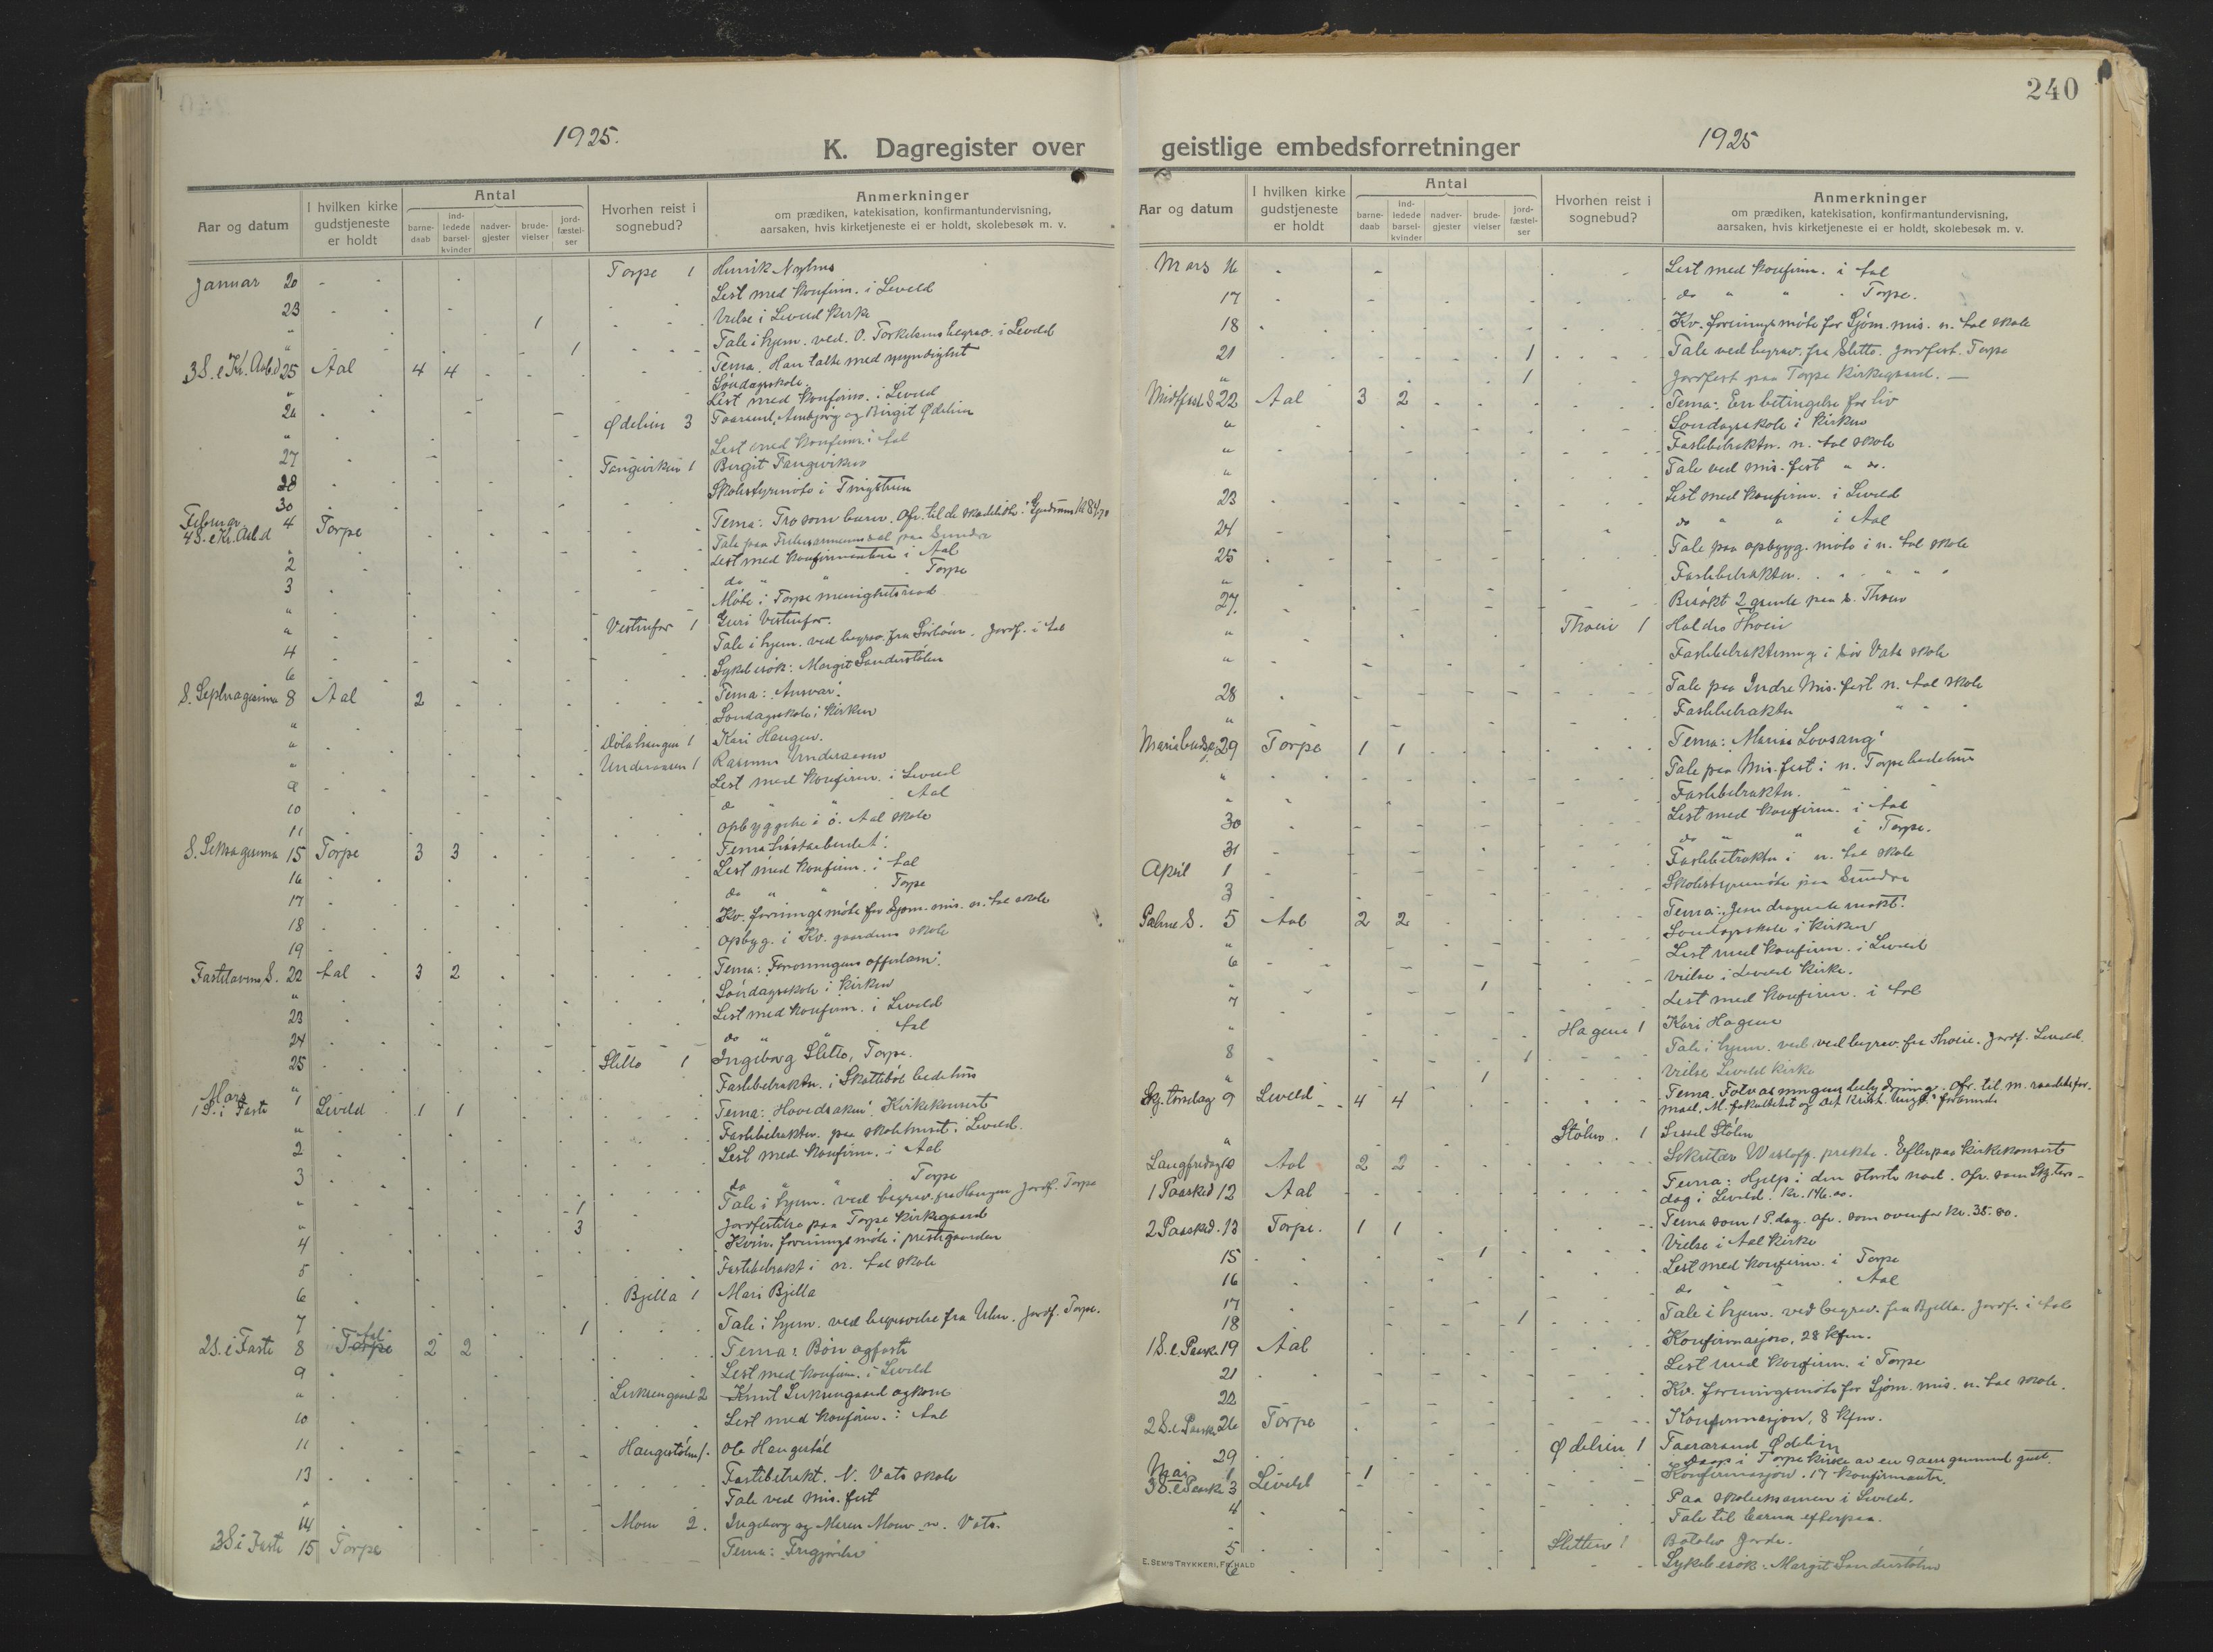 240
1925.
K. Dagregister over
Aar og datum
I hvilken kirke gudstjeneste er holdt
Antal
barne-daab
ind-ledede barsel-kvinder
nadver-gjester
brude-vielser
jord-fæstel-ser
Hvorhen reist i sognebud?
Anmerkninger
om prædiken, katekisation, konfirmantundervisning,
aarsaken, hvis kirketjeneste ei er holdt, skolebesøk m. v.
Januar 20 Torpe 1 Henrik
23 Lest med konfirm. i Leveld
" 1 Vielse i Leveld Kirke
" 1 Tale i hjem. ved. O. Torkelsens begrav. i Leveld
3 S. e Kr. Aab.d 25 Aal 4 4 Tema. Han talte med myndighet
" Söndagsskole.
26 Lest med konfirm. i Leveld
" Ødelien 3 Taarand, Ambjörg og Birgit Ødelien
27 Lest med konfirm. i Aal
28 Birgit
30 Skolestyremöte i
Februar
4 S. e Kr. Aab.d Torpe Tema: Tro som barn. Ofr. til de
" Tale paa
2 Lest med konfirmantene i Aal
3 do " " Torpe
" Möte i Torpe menighetsraad
" Vestenfor 1 Guri Vestenfor.
4 Tale i hjem. ved begrav. fra Jordf. i Aal
6 Sykebesök: Margit Sanderstölen
S. Septuagesima 8 Aal 2 Tema: "Ansvar".
" Söndagsskole i Kirken
" Dölehaugen 1 Kari Haugen.
" Underaasen 1 Rasmus Underaasen
9 Lest med konfirm. i Leveld
10 do " " Aal
11 Opbyggelse i ö. Aal skole
S. Seksagesima 15 Torpe 3 3 Tema
16 Lest med konfirm. i Aal
17 do " " Torpe
18 Kv. foreningsmöte for Sjöm. mis. n. Aal skole
19 Opbyg. i Kv. gaardens skole
Fastelavns S. 22 Aal 3 2 Tema: Forsoningens offerlam".
" Söndagsskole i Kirken
23 Lest med konfirm. i Leveld
24 do " Aal
25 Sletto 1 Ingeborg Sletto, Torpe.
" Fastebetraktn. i Skotteböl bedehus
Mars
1 S. i Faste 1 Leveld 1 1 Tema: "Hovedsaken". Kirkekonsert
" Fastebetraktn. paa skolehuset i Leveld.
2 Lest med konfirm. i Aal
3 do " " Torpe
" 1 Tale i hjem. ved begrav. fra Haugen Jordf. Torpe
" 3 Jordfestelse paa Torpe Kirkegaard
4 Kvin. foreningsmöte i prestegaarden
5 Fastebetrakt i n. Aal skole
6 Bjella 1 Mari Bjella
7 1 Tale i hjem. ved begravelse fra Ulen. Jordf. Torpe.
2 S. i Faste 8 Aal Torpe 2 2 Tema: Bön og faste
9 Lest med konfirm. i Leveld
" 2 Knut og kone
10 Lest med konfirm. i Aal
11 Haugestölen 1. Ole Haugestöl
13 Fastebetrakt. N. Vats skole
" Tale ved Mis. fest
14 Moen 2. Ingeborg og Maren Moen n. Vats.
3 S i Faste 15 Torpe Tema: "Frigjörelse"
240
1925
geistlige embedsforretninger
Aar og datum
I hvilken kirke gudstjeneste er holdt
Antal
barne-daab
ind-ledede barsel-kvinder
nadver-gjester
brude-vielser
jord-fæstel-ser
Hvorhen reist i sognebud?
Anmerkninger
om prædiken, katekisation, konfirmantundervisning,
aarsaken, hvis kirketjeneste ei er holdt, skolebesøk m. v.
Mars 16 Lest med konfirm. i Aal
17 do " " Torpe.
18 Kv. foreningsmöte for Sjöm. mis. n. Aal skole
21 1 Tale ved begrav. fra Sletto. Jordfest. Torpe
" 1 Jordfest paa Torpe Kirkegaard.
Midfast S 22 Aal 3 2 Tema: En betingelse for liv
" Söndagsskole i Kirken
" Fastebetraktn. n. Aal skole
" Tale ved mis. fest " do.
23 Lest med konfirm. i Leveld
24 do " " i Aal
25 Tale paa opbygg. möte i n. Aal skole
" Fastebetraktn. " " "
27. Besökt 2 gamle paa
" Thoen 1 Haldro Thoen
" Fastebetraktning i Vats skole
28 Tale paa Indre Mis. fest n. Aal skole
" Fastebetraktn " " "
Mariæ budsk. 29 Torpe 1 1 Tema: "Marias Lovsang"
" Tale paa Mis. fest i n. Torpe bedehus
" Fastebetraktn. "
30 Lest med konfirm. i Aal
31 do " " i Torpe.
April 1 Fastebetraktn i n. Aal skole
3 Skolestyremöte paa Sundre
Palme S. 5 Aal 2 2 Tema: "Jesu dragende makt."
" Söndagsskole i Kirken
6 Lest med konfirm. i Leveld
" 1 Vielse i Leveld Kirke.
7 Lest med konfirm. i Aal
" Hagene 1 Kari Hagene
8 1 Tale i hjem. ved ved begrav. fra Thoen. Jordf. Leveld.
" 1 Vielse Leveld Kirke
Skj. torsdag 9 Leveld 4 4 Tema. Ofr. til m.
" Stölen. 1 Sissel Stölen
Langfredag 10 Aal 2 2 Sekretær prekte. Efterpaa kirkekonsert
1 Paasked 12 Aal Tema: Hjelp i den störste nöd. Ofr. som Skj. tors-
dag i Leveld. Kr. 146.00.
2 Paasked. 13 Torpe. 1 1 Tema som 1 P. dag. Ofr. som ovenfor kr. 38.80.
15 1 Vielse i Aal Kirke
16 Lest med konfirm. i Torpe
17 do " " Aal
18 1 Tale i hjem. ved begrav. fra Bjella. Jordf. i Aal
1 S. e. Paaske 19 Aal Konfirmasjon, 28 kfm.
21 Lest med konfirm. i Torpe
22 Kv. foreningsmöte for Sjöm. mis. n. Aal skole.
2 S. e. Paaske 26 Torpe Konfirmasjon, 8 kfm.
29 Ødelien 1 Taaraand Ødelien
Mai 1 1 Daap i Torpe kirke av en 9 aar gammel gut.
3 S. e. Paaske 3 Leveld Konfirmasjon. 17 konfirmanter.
4 Paa skoleeksamen i Leveld.
" Tale til barna efterpaa.
5 Sletten 1 Botolv Jorde.
6 Sykebesök: Margit Sanderstölen
E. SEM'S TRYKKERI, FR.HALD